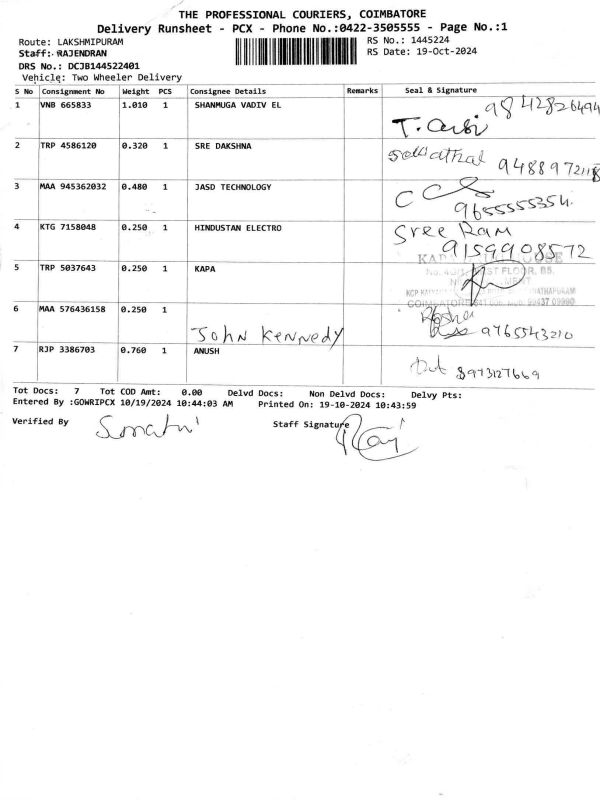 THE PROFESSIONAL COURIERS, COIMBATORE
Delivery Runsheet - PCX - Phone No.:0422-3505555 - Page No.:1
Route: LAKSHMIPURAM
RS No.: 1445224
Staff: RAJENDRAN
RS Date: 19-Oct-2024
DRS No.: DCJB144522401
Vehicle: Two Wheeler Delivery
S No Consignment No Weight PCS Consignee Details Remarks Seal & Signature
1 VNB 665833 1.010 1 SHANMUGA VADIV EL 9842826494
2 TRP 4586120 0.320 1 SRE DAKSHNA
3 MAA 945362032 0.480 1 JASD TECHNOLOGY
9655555354
4 KTG 7158048 0.250 1 HINDUSTAN ELECTRO Sree Ram
9159908572
5 TRP 5037643 0.250 1 KAPA
ST FLOOR, B5.
COIMBATORE 99437 09990
6 MAA 576436158 0.250 1
John Kennedy 9765543210
7 RJP 3386703 0.760 1 ANUSH
8973127669
Tot Docs: 7 Tot COD Amt: 0.00 Delvd Docs: Non Delvd Docs: Delvy Pts:
Entered By :GOWRIPCX 10/19/2024 10:44:03 AM Printed On: 19-10-2024 10:43:59
Verified By Staff Signature